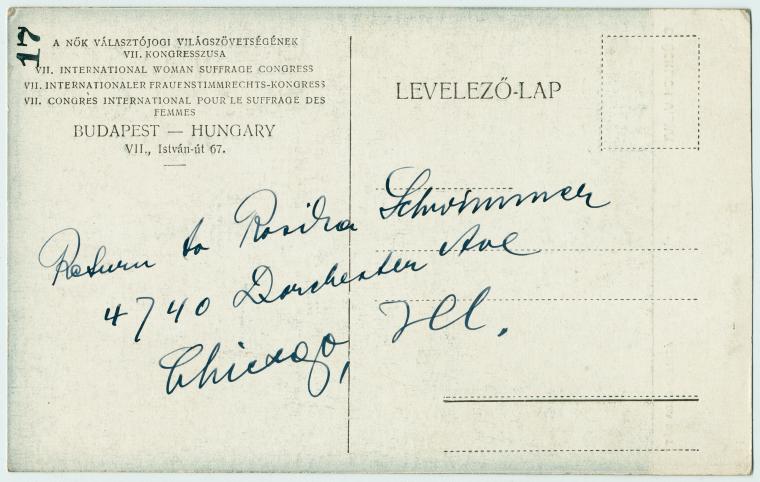 17
A NŐK VÁLASZTÓJOGI VILÁGSZÖVETSÉGÉNEK
VII. KONGRESSZUSA
VII. INTERNATIONAL WOMAN SUFFRAGE CONGRESS
VII. INTERNATIONALER FRAUENSTIMMRECHTS-KONGRESS
VII. CONGRÈS INTERNATIONAL POUR LE SUFFRAGE DES
FEMMES
BUDAPEST — HUNGARY
VII., István-út 67.
LEVELEZŐ-LAP
Return to Rosika Schwimmer
4740 Dorchester Ave
Chicago, Ill.